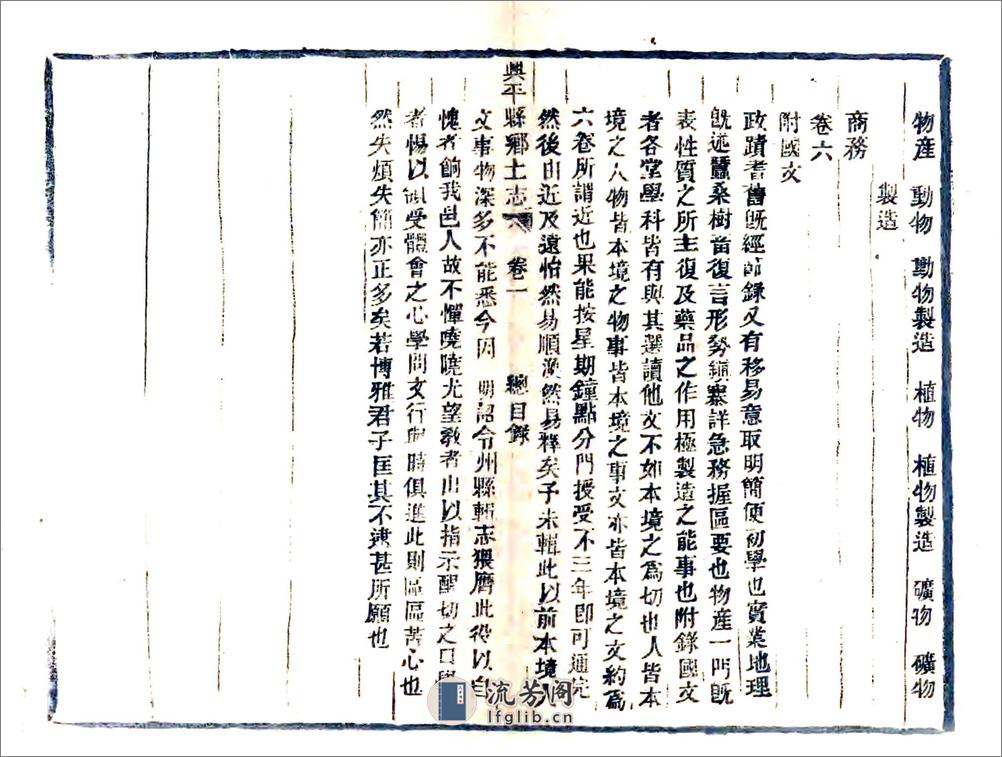 物産　動物　動物製造　植物　植物製造　礦物　礦物
製造
商務
卷六
附國文
政蹟耆舊既經節錄又有移易意取明簡便初學也實業地理
既述蠶桑樹畜復言形勢鎮寨詳急務握區要也物産一門既
表性質之所主復及藥品之作用極製造之能事也附錄國文
者各堂學科皆有與其選讀他文不如本境之爲切也人皆本
境之人物皆本境之物事皆本境之事文亦皆本境之文約爲
六卷所謂近也果能按星期鐘點分門授受不三年即可通完
然後由近及遠怡然易順渙然易釋矣予未輯此以前本境人
興平縣鄉土志　卷一　總目錄
文事物深多不能悉今因　明詔令州縣輯志猥膺此役以自
愧者餉我邑人故不憚嘵嘵尤望教者出以指示醒切之口學
者惕以領受體會之心學問文行與時俱進此則區區苦心也
然失煩失簡亦正多矣若博雅君子匡其不逮甚所願也
流芳阁
lfglib.cn